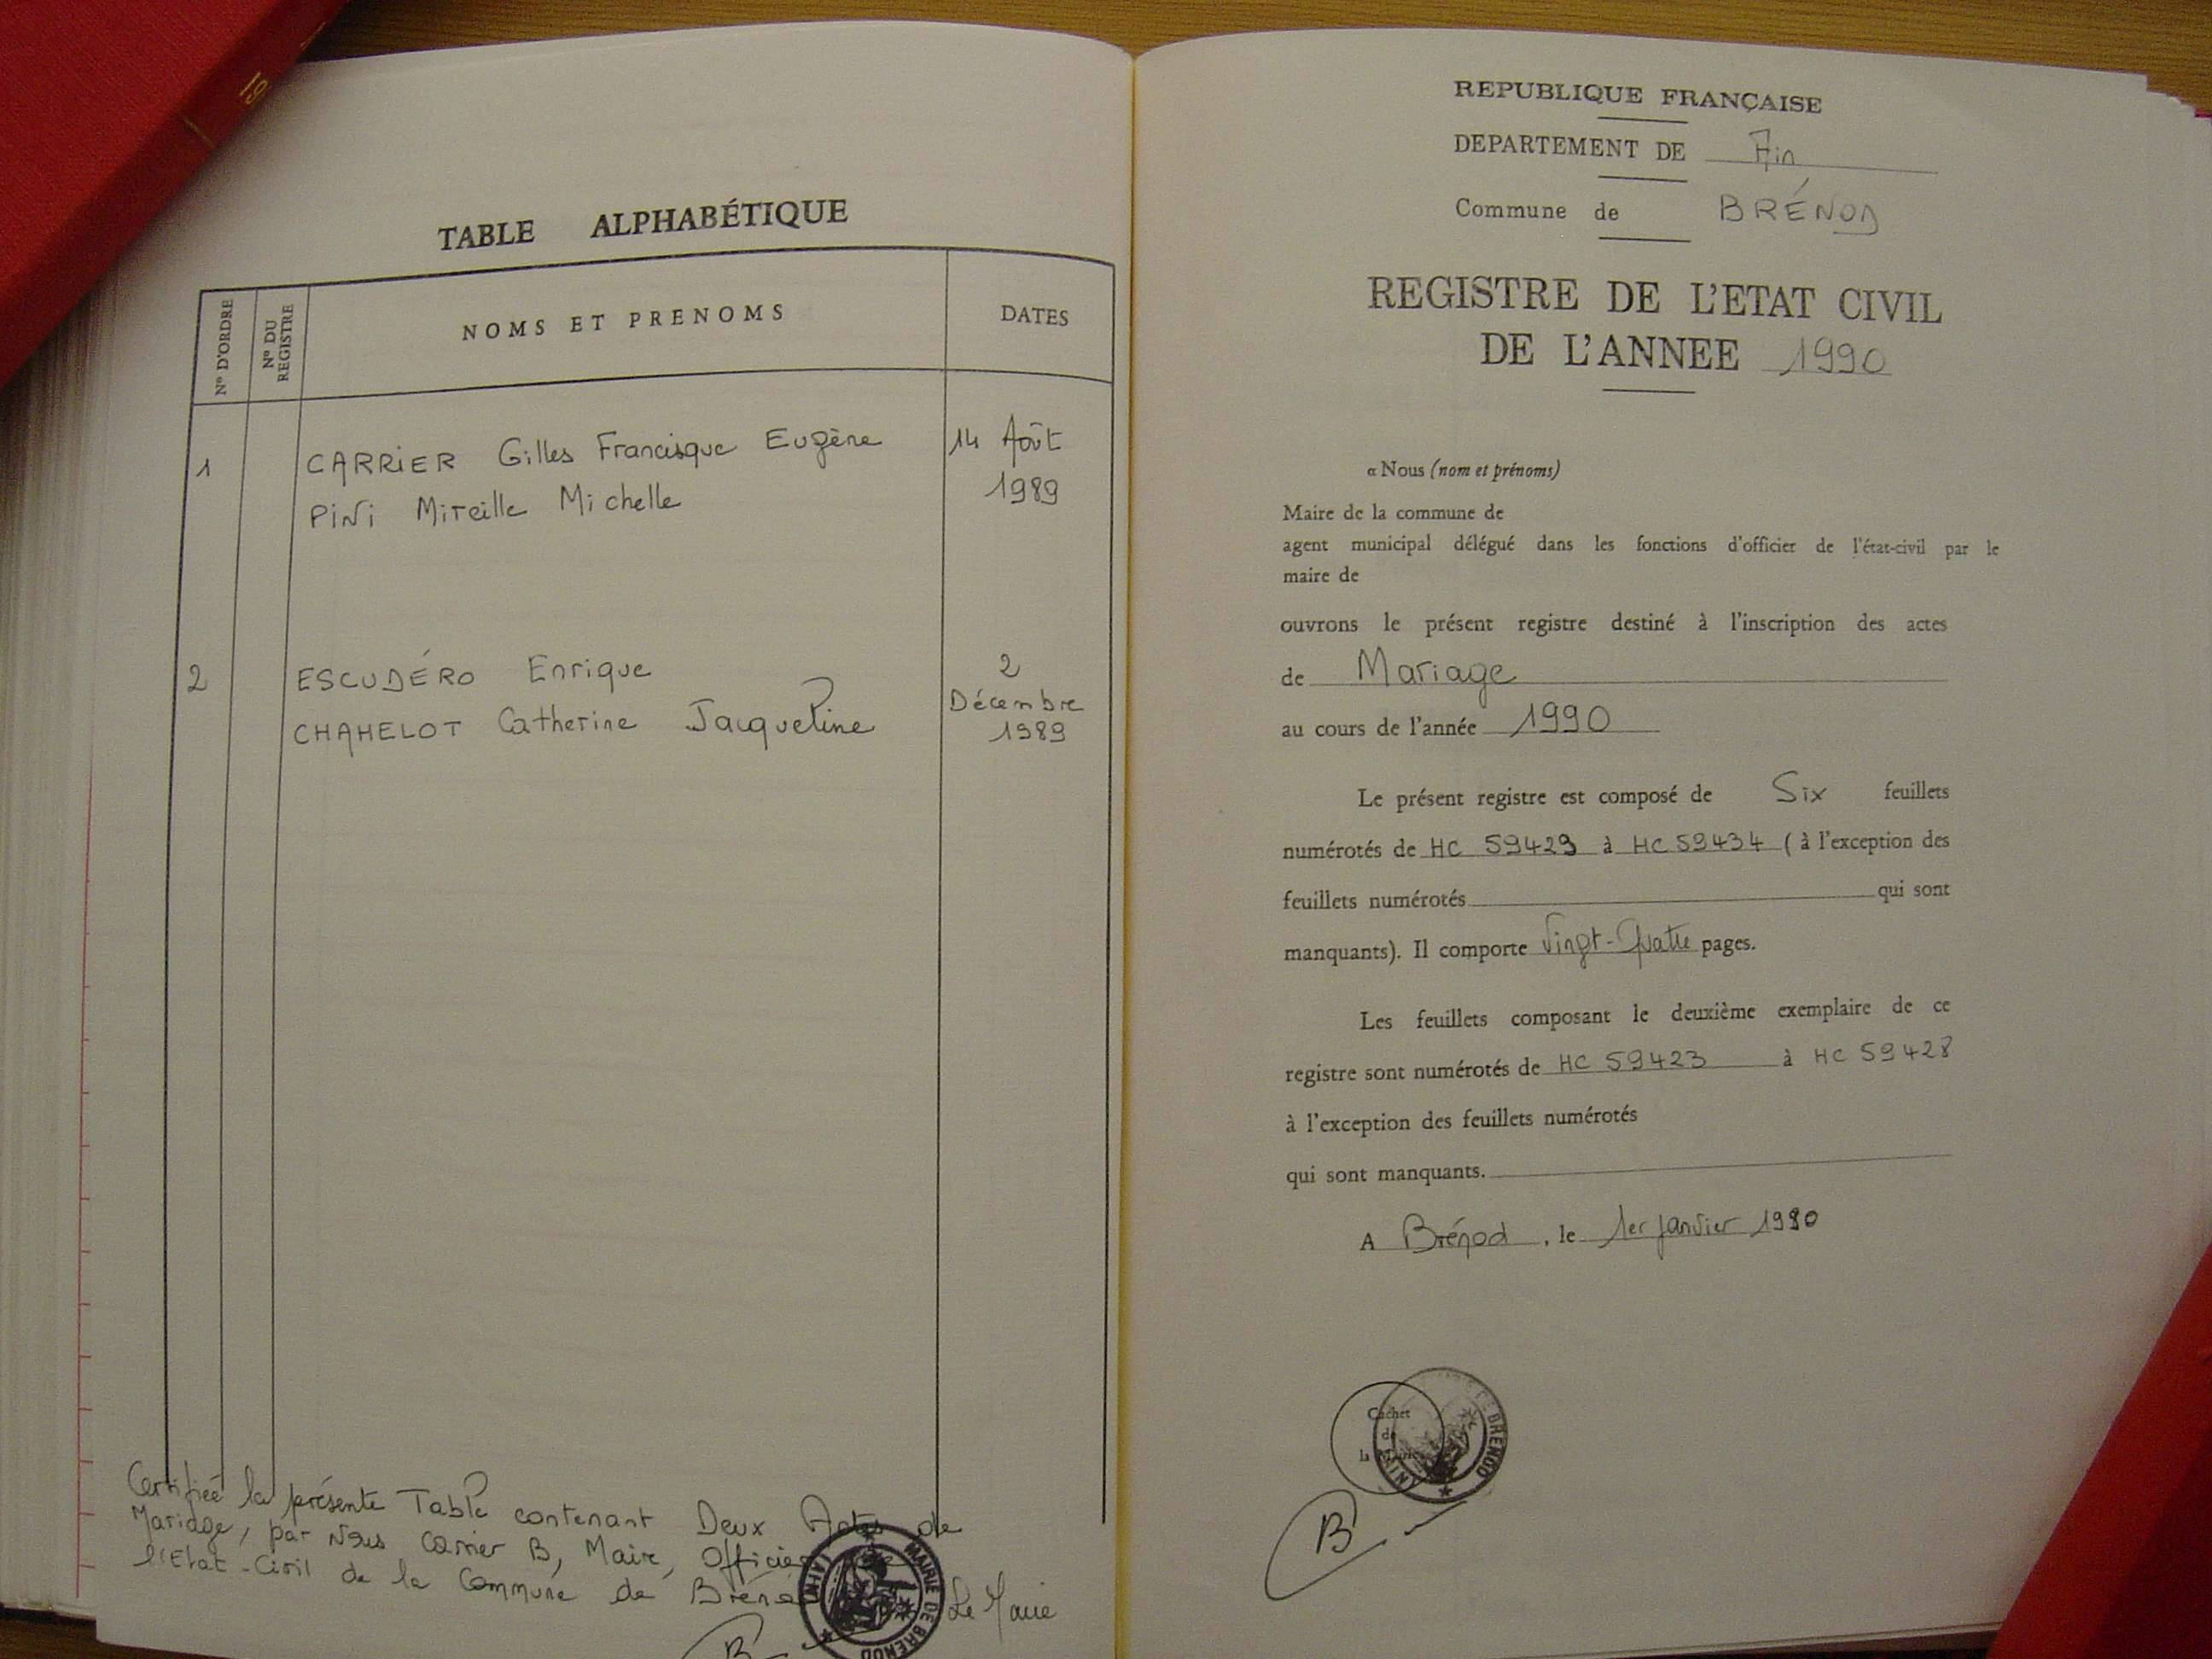 19
TABLE ALPHABÉTIQUE
N° D'ORDRE
N° DU REGISTRE
NOMS ET PRENOMS
DATES
1
CARRIER Gilles Francisque Eugène
14 Août
PINI Mireille Michelle
1989
2
ESCUDÉRO Enrique
2
Décembre
CHAHELOT Catherine Jacqueline
1989
Certifiée la présente Table contenant Deux Actes de
Mariage, par Nous Carrier B, Maire, Officier de
l'Etat-Civil de la Commune de Brénod
Le Maire
MAIRIE DE BRENOD (AIN)
B
REPUBLIQUE FRANÇAISE
DEPARTEMENT DE Ain
Commune de BRÉNOD
REGISTRE DE L'ETAT CIVIL
DE L'ANNEE 1990
« Nous (nom et prénoms)
Maire de la commune de
agent municipal délégué dans les fonctions d'officier de l'état-civil par le
maire de
ouvrons le présent registre destiné à l'inscription des actes
de Mariage
au cours de l'année 1990
Le présent registre est composé de Six feuillets
numérotés de HC 59429 à HC 59434 ( à l'exception des
feuillets numérotés qui sont
manquants). Il comporte Vingt-Quatre pages.
Les feuillets composant le deuxième exemplaire de ce
registre sont numérotés de HC 59423 à HC 59428
à l'exception des feuillets numérotés
qui sont manquants.
A Brénod, le 1er Janvier 1990
Cachet
de
la Mairie
BRENOD
B